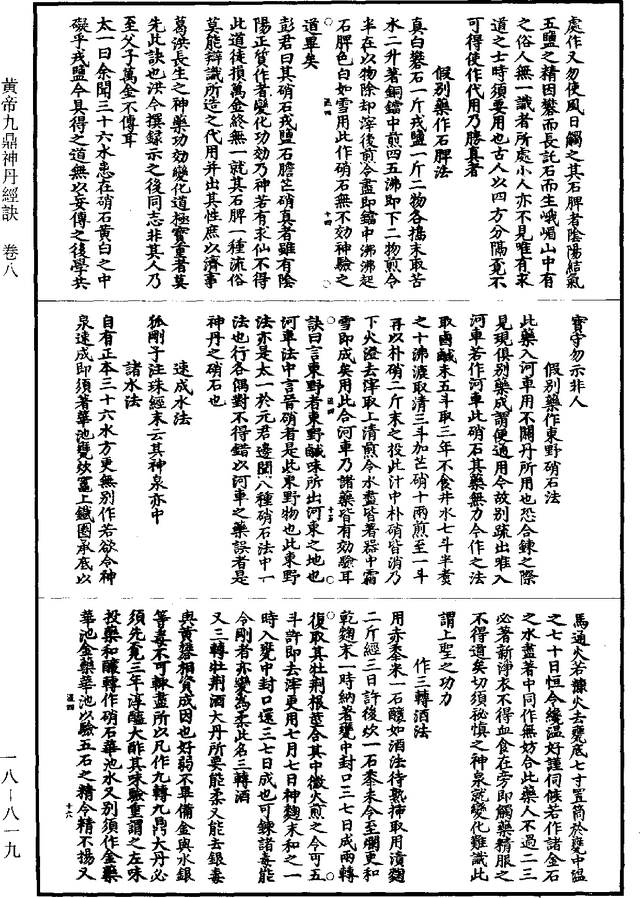 黄帝九鼎神丹經訣　卷八
一八－八一九
處作又勿使風日觸之其石脾者陰陽結氣
五鹽之精因礬而長託石而生峨嵋山中有
之俗人無一識者所處小人亦不見唯有求
道之士時須要用也古人以四方分隔竟不
可得使作代用乃勝真者
假别藥作石脾法
真白礬石一斤戎鹽一斤二物各擣末取苦
水二升著銅鐺中煎四五沸即下二物煎令
半在以物除却滓後煎令盡即鐺中沸沸起
石脾色白如雪用此作硝石無不効神驗之
道畢矣
彭君曰其硝石戎鹽石膽芒硝真者雖有陰
陽正質作者變化功効乃神若有求仙不得
此道徒損萬金終無一就其石脾一種流俗
莫能辯識所造之代用并出其性庶以濟事
葛洪長生之神藥功効變化道極寳重者莫
先此訣也洪今撰録示之後同志非其人乃
至父子萬金不傳耳
太一曰余聞三十六水患在硝石黄白之中
礙乎戎鹽今具得之道無以妄傳之後學共
寳守勿示非人
假别藥作東野硝石法
此藥入河車用不關丹所用也恐合鍊之際
見現俱别藥成謂便通用今故别疏出唯入
河車若作河車此硝石其藥無力今作之法
取鹵鹹末五斗取三年不食井水七斗半煑
之十沸漉取清三斗加芒硝十兩煎至一斗
再以朴硝二斤末之投此汁中朴硝皆消乃
下火澄去滓取上清煎令水盡皆著器中霜
雪即成矣用此合河車乃諸藥皆有効驗耳
訣曰言東野者東野鹹味所出河東之地也
河車法中言晉硝者是此東野物也此東野
法亦是太一於元君邊聞八種硝石法中一
法也行各偶對不得錯以河車之藥誤者是
神丹之硝石也
速成水法
狐剛子注珠經末云其神泉亦中
諸水法
自有正本三十六水方更無别作若欲令神
泉速成即須著華池甕炊竈上鐵圈承底以
馬通火若糠火去甕底七寸置筒於甕中温
之七十日恒令纔温好謹伺候若作諸金石
之水盡著中同作無妨合此藥人不過二三
必著新淨衣不得血食在旁即觸藥精服之
不得道矣切須秘慎之神泉就變化難識此
謂上聖之功力
作三轉酒法
用赤黍米一石釀如酒法待熟押取用漬麴
二斤經三日許後炊一石黍米令至爛更和
乾麴末一時納著甕中封口三七日成兩轉
復取其牡荆根莖合其中微火煎之令可五
斗許即去滓更用七月七日神麴末和之一
時入甕中封口還三七日成也可鍊諸毒能
令剛者亦變為柔此名三轉酒
又三轉牡荆酒大丹所要能柔又能去銀毒
與黄礬相資成因也好弱不畢備金與水銀
等毒不可輙盡所以凡作九轉九鼎大丹必
須先覓三年淳醯大酢其味驗重謂之左味
投藥和釀轉作硝石華池水又别須作金藥
華池金藥華池以驗五石之精令精不揚又